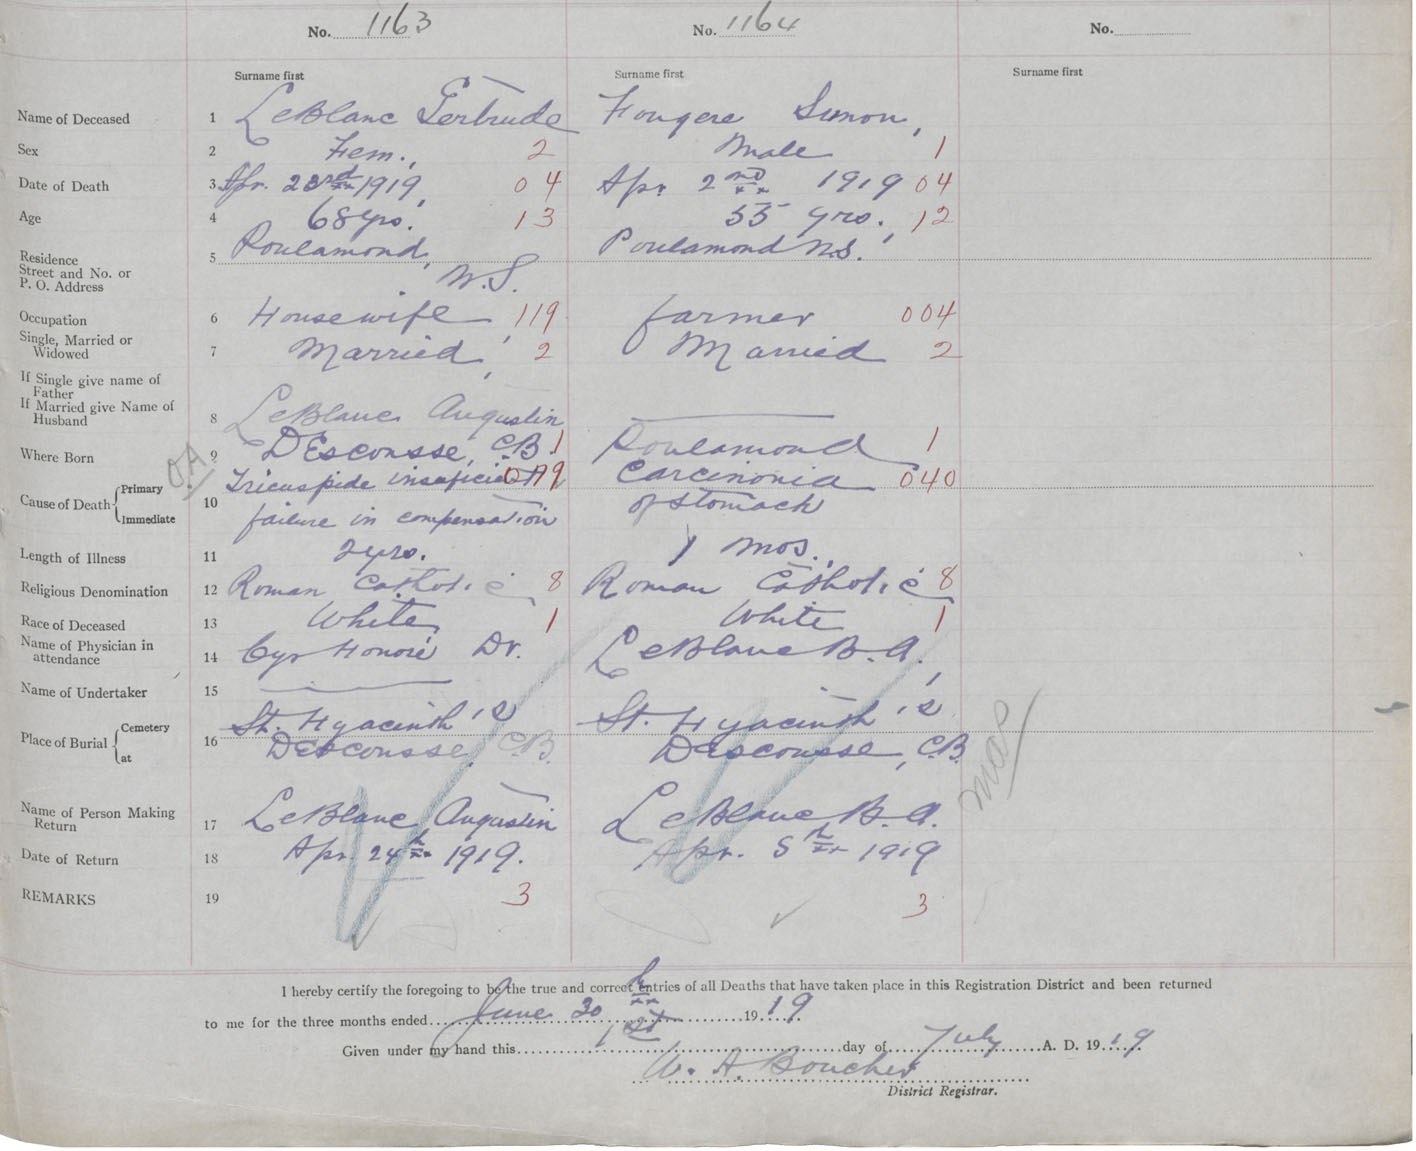 No. 1163 No. 1164 No.
Surname first Surname first Surname first
Name of Deceased 1 LeBlanc Gertrude Fougere Simon,
Sex 2 Fem., 2 Male 1
Date of Death 3 Apr. 23rd 1919, 04 Apr. 2nd 1919 04
Age 4 68 yrs. 13 55 yrs., 12
Residence
Street and No. or
P. O. Address 5 Poulamond, N.S. Poulamond N.S.
Occupation 6 Housewife, 119 farmer 004
Single, Married or
Widowed 7 Married, 2 Married 2
If Single give name of
Father
If Married give Name of
Husband 8 LeBlanc Augustin
Where Born 9 DEscousse, C.B. 1 Poulamond 1
O.A
Cause of Death Primary Tricuspide insuficient 079 Carcinonia 040
Immediate 10 failure in compensation of stomach
Length of Illness 11 2 yrs. 1 mos.
Religious Denomination 12 Roman Catholic 8 Roman Catholic 8
Race of Deceased 13 White, 1 White 1
Name of Physician in
attendance 14 Cyr Honoré Dr. LeBlanc B. A.,
Name of Undertaker 15
Place of Burial Cemetery St. Hyacinth's St. Hyacinth's
at 16 DEscousse C.B. DEscousse, C.B.
Name of Person Making
Return 17 LeBlanc Augustin LeBlanc B. A.
Date of Return 18 Apr. 24th 1919. Apr. 5th 1919
REMARKS 19 3 3
I hereby certify the foregoing to be the true and correct entries of all Deaths that have taken place in this Registration District and been returned
to me for the three months ended June 30th 1919
Given under my hand this 1st day of July A. D. 1919
W. A. Boucher
District Registrar.